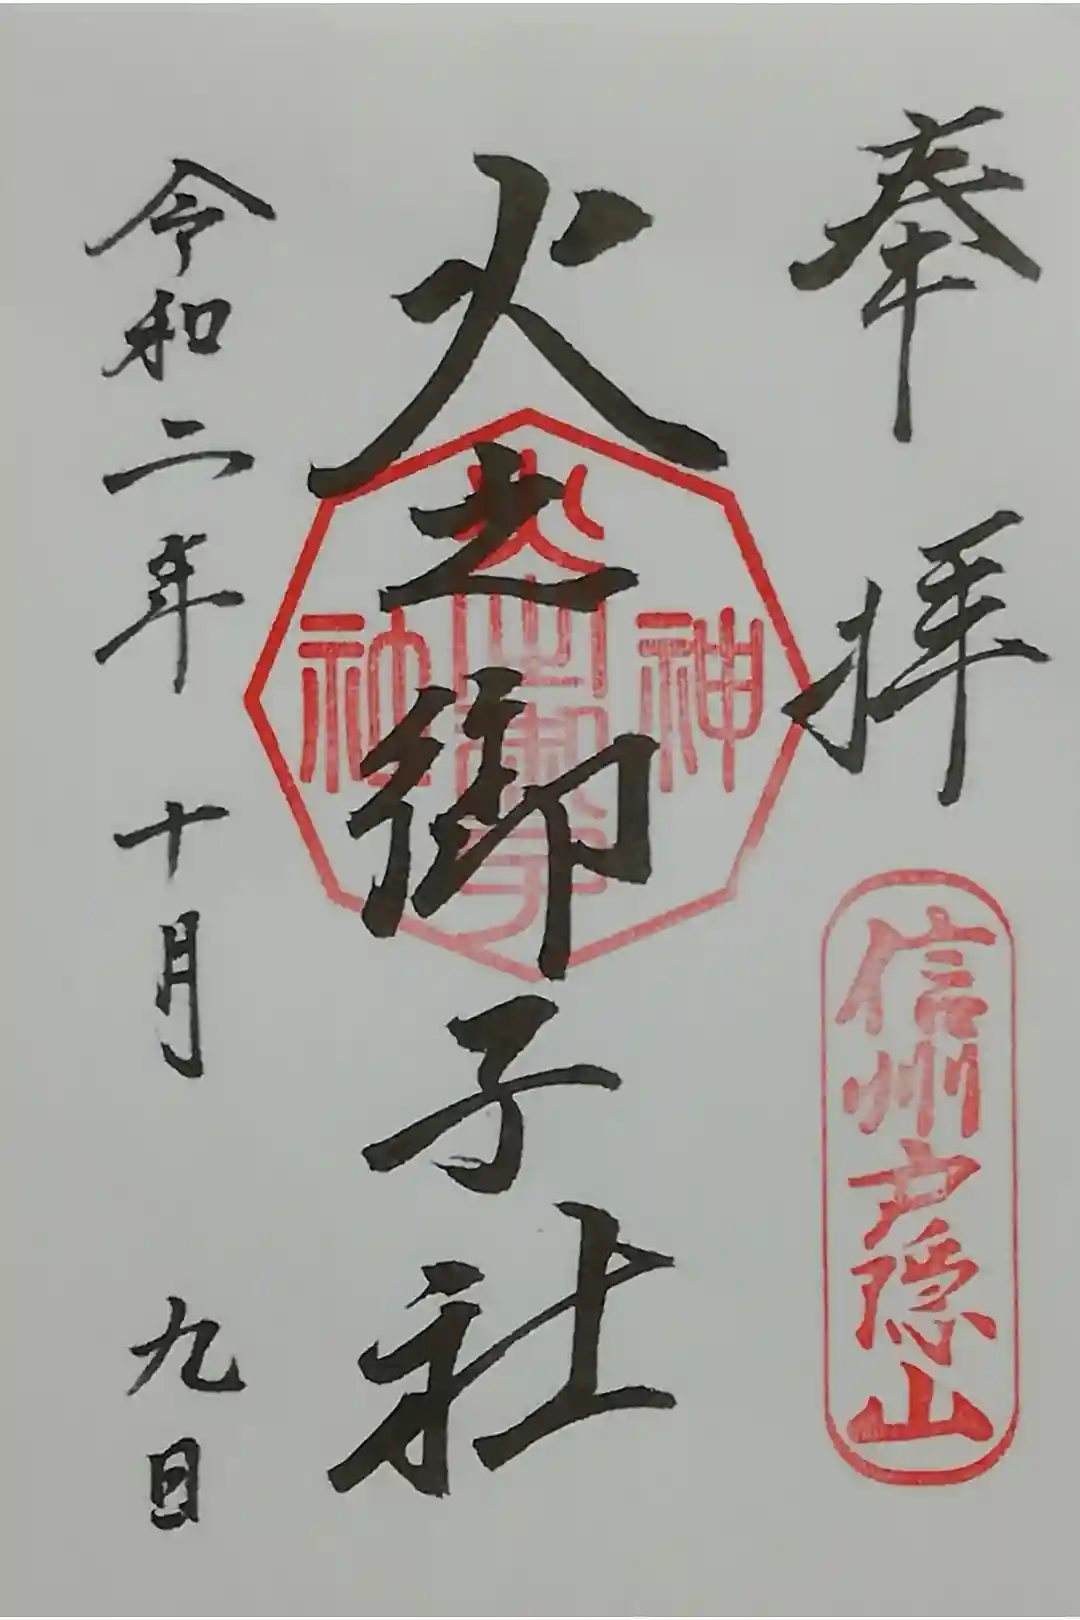 奉拝
信州戸隠山
火之御子社
神
火之御子
社
令和二年 十月 九日